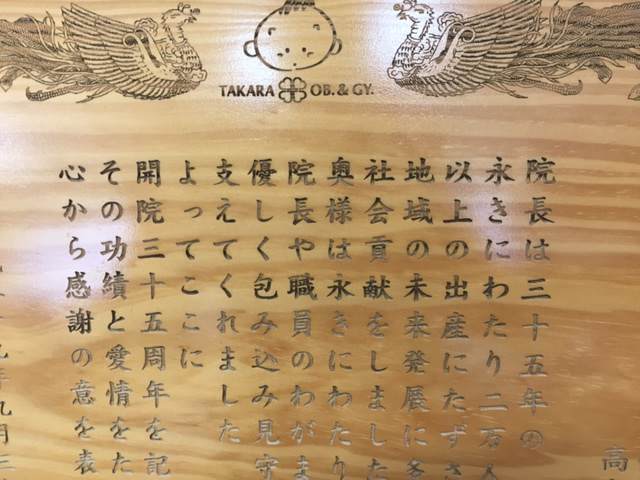 TAKARA OB. & GY.
院長は三十五年の
永きにわたり二万人
以上の出産にたずさ
地域の未来発展に多
社会貢献をしました
奥様は永きにわたり
院長や職員のわがま
優しく包み込み見守
支えてくれました
よってここに
開院三十五周年を記
その功績と愛情をた
心から感謝の意を表
高